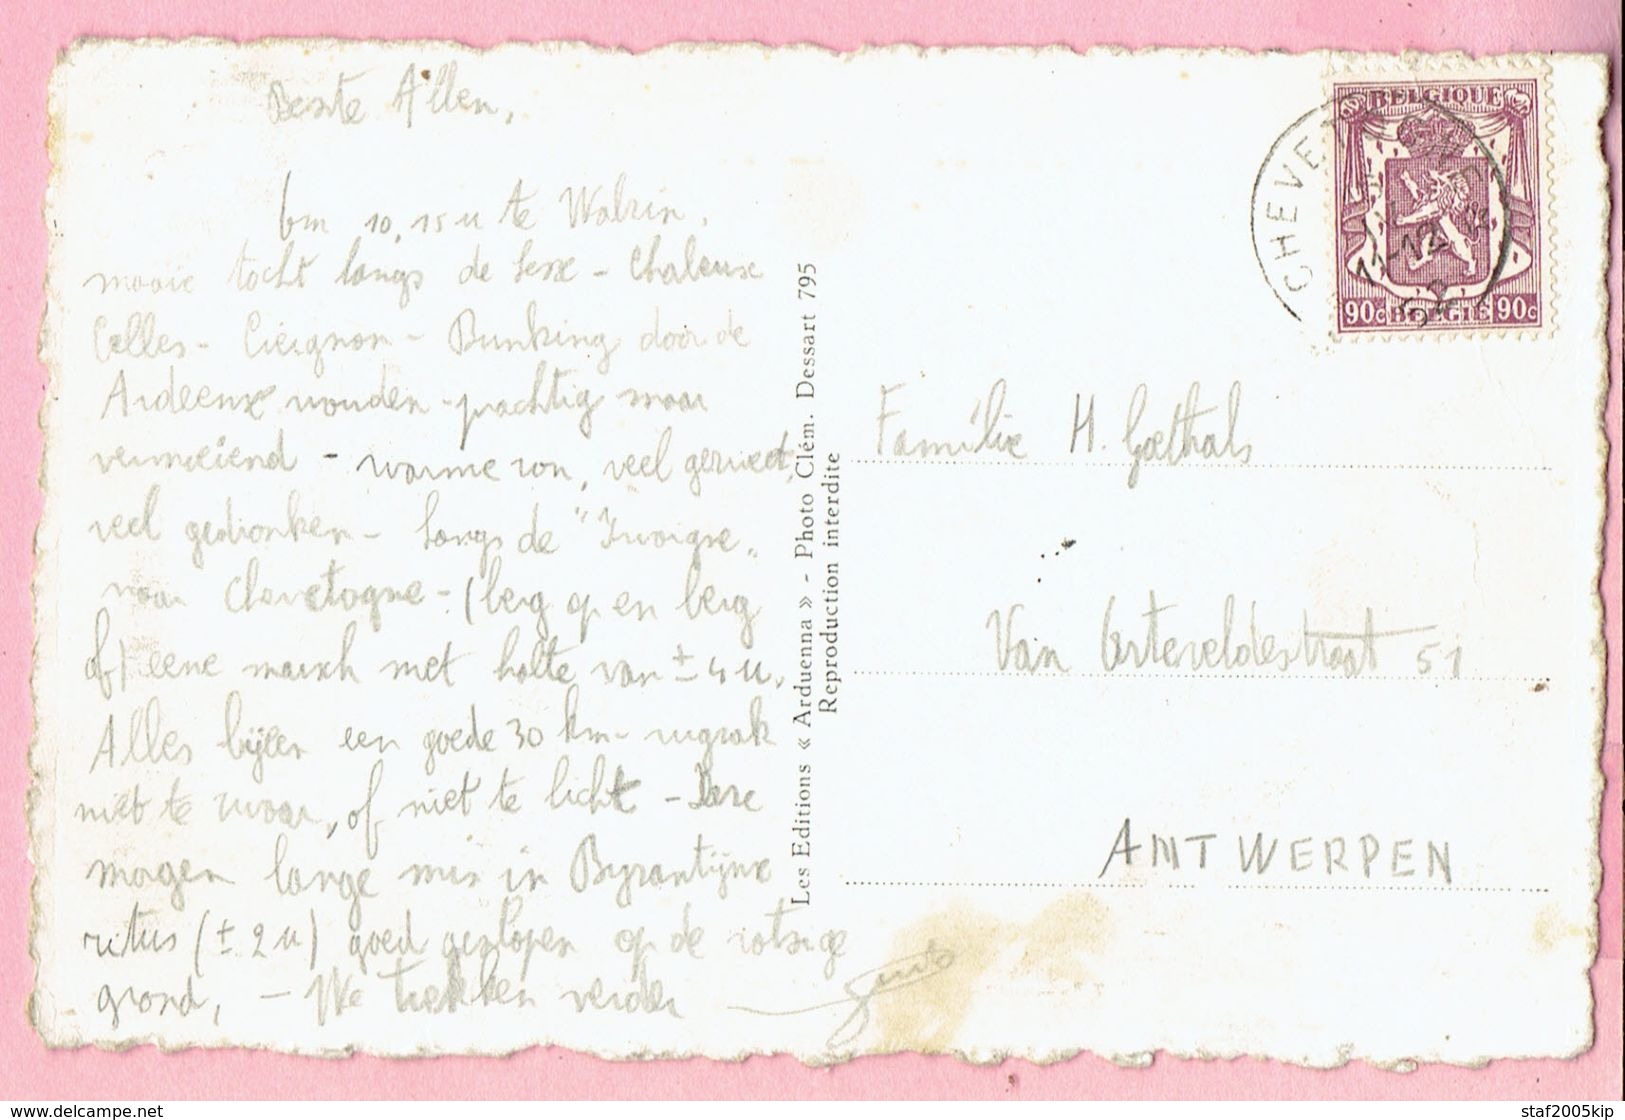 Beste Allen,
om 10,15 u te Walzin.
mooie tocht langs de Lesse - Chaleux
Celles - Ciergnon - Bunking door de
Ardeense wouden - prachtig maar
vermoeiend - warme zon, veel gezweet,
veel gedronken - langs de "Ywoigne"
naar Chevetogne - (berg op en berg
af) eene marsch met halte van ± 4 u.
Alles bijeen een goede 30 km - rugzak
niet te zwaar, of niet te licht - Deze
morgen lange mis in Byzantijnse
ritus (± 2 u) goed geslapen op de rotsige
grond, - We trekken verder
Guido
Les Editions « Arduenna » - Photo Clém. Dessart 795
Reproduction interdite
BELGIQUE
90c BELGIE 90c
CHEVETOGNE
11-12
52
Familie H. Goethals
Van Arteveldestraat 51
ANTWERPEN
delcampe.net
staf2005kip